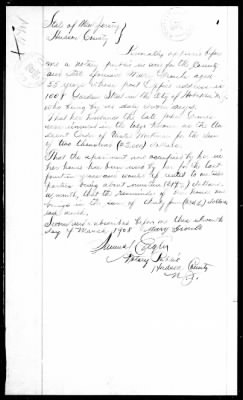 State of New Jersey
Hudson County }
Personally appeared before
me a notary public in and for the County
and State
55 years whose post office address is
1008 Garden Street in the City of Hoboken N.J.
who being by me duly sworn says,
That her husband the late John
was insured in the lodge known as the An
cient Order of United Workmen for the sum
of two thousand ($2,000) dollars.
That the apartment now occupied by her in
her home has been
fourteen years and would if rented to outside
parties bring about nineteen ($19.) dollars
a month, that the remainder of her house
brings in the sum of thirty four ($34) dollars
per month.
Sworn and subscribed before me this eleventh
day of March 1908 Mary
Samuel Engler
Notary Public
Hudson County
N.J.